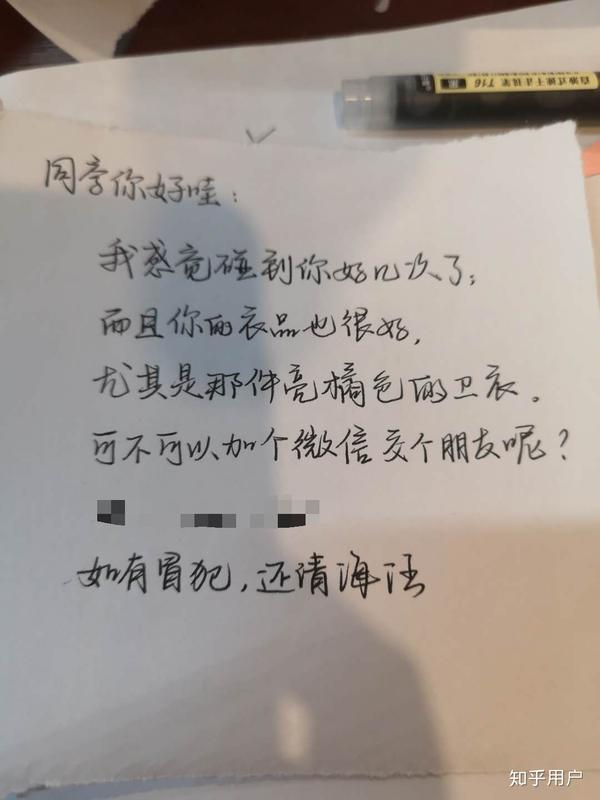 直液式速干走珠笔 716 黑
同学你好哇：
我感觉碰到你好几次了；
而且你的衣品也很好，
尤其是那件亮橘色的卫衣。
可不可以加个微信交个朋友呢？
如有冒犯，还请海汪
知乎用户